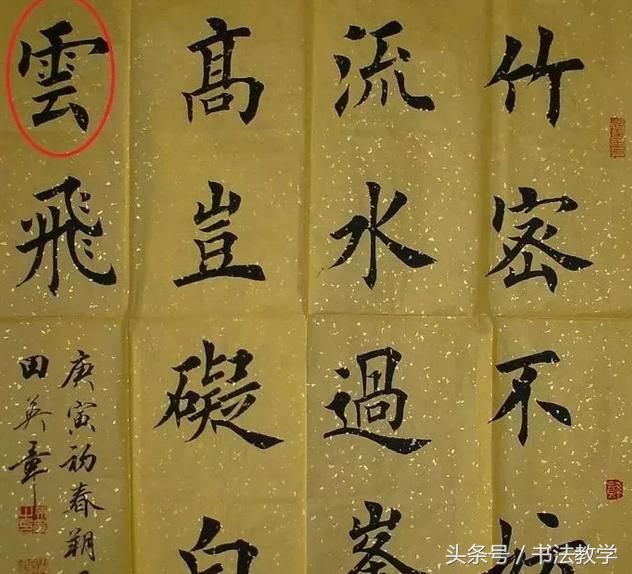 竹密不妨
流水過峯
髙豈礙白
雲飛
庚寅初春朔
田英章
头条号/书法教学